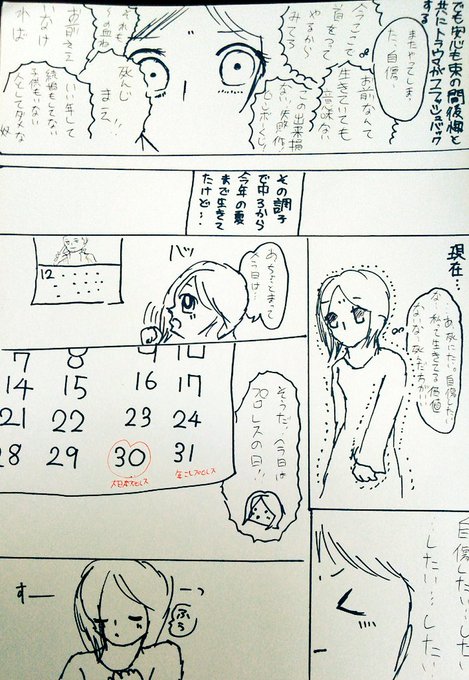 でも安心も束の間後悔と
共にトラウマがフラッシュバック
する
またやってしまっ
た、自傷、
お前なんて
生きていても
意味ない
この出来損
ない、失敗作
今ここで
首をつって
やるから
みてろ
死んじ
まえ!!
それも
お前さえ
いなけ
れば
いい年して
結婚もしてない
子供もいない
人としてダメな
奴
その調子
で中3から
今年の夏
まで生きて
たけど…
現在…
死にたい。自傷したい
な、私って生きてる価値
ないな、死んだ方がいい
あちょっとまって
今日は…
バッ
12
7 8 9 10
14 15 16 17
21 22 23 24
28 29 30 31
大日本プロレス
プロレス
そうだ、今日は
プロレスの日!!
自傷したい…した
したい…したい
すーーっ
ふぅ